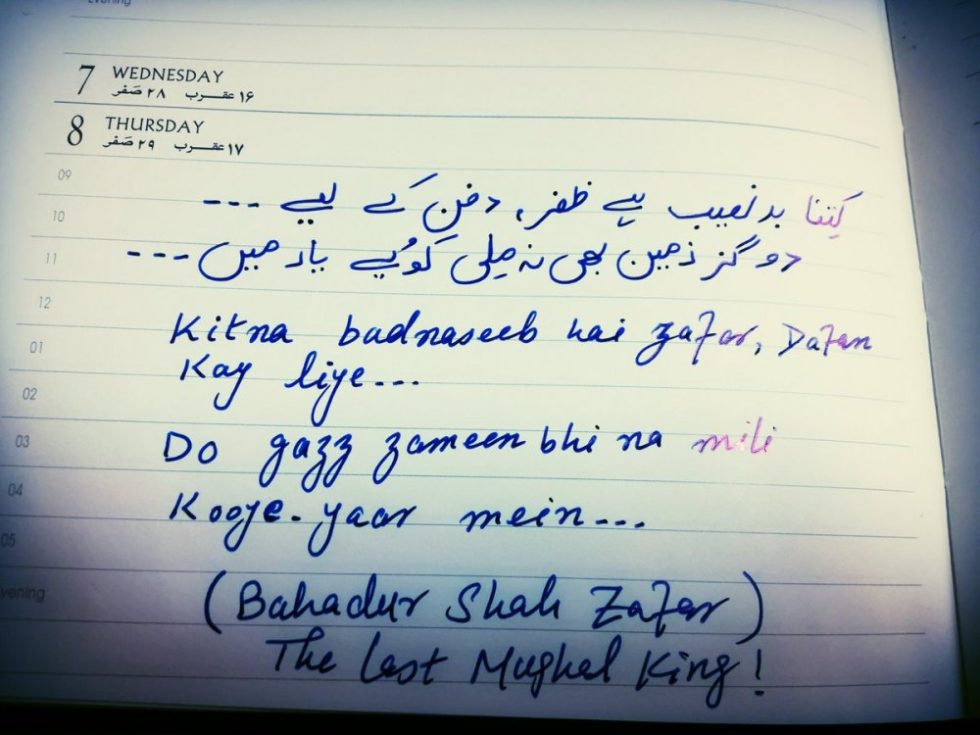 Evening
7 WEDNESDAY
۱۶ عقرب ۲۸ صَفَر
8 THURSDAY
۱۷ عقرب ۲۹ صَفَر
09
کِتنا بدنصیب ہے ظفر، دفن کے لیے ---
10
دو گز زمین بھی نہ مِلی کوُیے یار میں ---
11
12
Kitna badnaseeb hai zafar, Dafan
01
Kay liye...
02
03
Do gazz zameen bhi na mili
04
Kooye-yaar mein...
05
vening
(Bahadur Shah Zafar)
The last Mughal King!